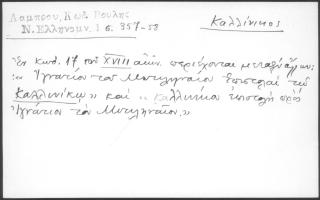 Λάμπρου, Κωδ. Βουλῆς
Ν. Ἑλληνομν. 1 σ. 357-58
Καλλίνικος
Ἐν κωδ. 17 τοῦ XVIII αἰῶν. περιέχονται μεταξὺ ἄλλων:
« Ἰγνατίου τοῦ Μυτιλήνης ἐπιστολαὶ τῷ
Καλλινίκῳ » καὶ « Καλλινίκου ἐπιστολὴ πρὸς
Ἰγνάτιον τὸν Μυτιλήνης. »